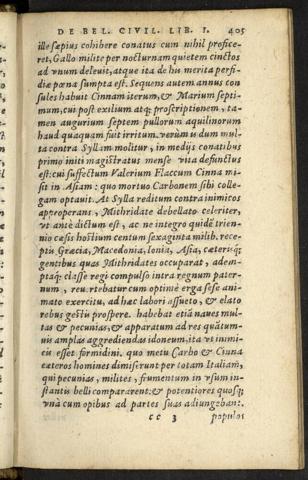 DE BEL. CIVIL. LIB. I. 405
ille sæpius cohibere conatus cum nihil profice-
ret, Gallo milite per nocturnam quietem cinctos
ad vnum deleuit, atque ita de his merita perfi-
diæ pœna sumpta est. Sequens autem annus con
sules habuit Cinnam iterum, & Marium septi-
mum, cui post exilium atq; proscriptionem, ta-
men augurium septem pullorum aquilinorum
haud quaquam fuit irritum. verùm is dum mul-
ta contra Syllam molitur, in medijs conatibus
primo initi magistratus mense vita defunctus
est: cui suffectum Valerium Flaccum Cinna mi-
sit in Asiam: quo mortuo Carbonem sibi colle-
gam optauit. At Sylla reditum contra inimicos
approperant, Mithridate debellato celeriter,
vt antè dictum est, ac ne integro quidē trien-
nio cæsis hostium centum sexaginta milib. rece-
ptis Græcia, Macedonia, Ionia, Asia, cæterisq;
gentibus quas Mithridates occuparat, adem-
ptaq; classe regi compulso intra regnum pater-
num, reuertebatur cum optimè erga se se ani-
mato exercitu, ad hæc labori assueto, & elato
rebus gestis prospere. habebat etiā naues mul-
tas & pecunias, & apparatum ad res quātum-
uis amplas aggrediendas idoneum, ita vt inimi-
cis esset formidini. quo metu Carbo & Cinna
cæteros homines dimiserunt per totam Italiam,
qui pecunias, milites, frumentum in vsum in-
stantis belli compararent: & potentiores quosq;
vnà cum opibus ad partes suas adiungebant.
cc 3 populos